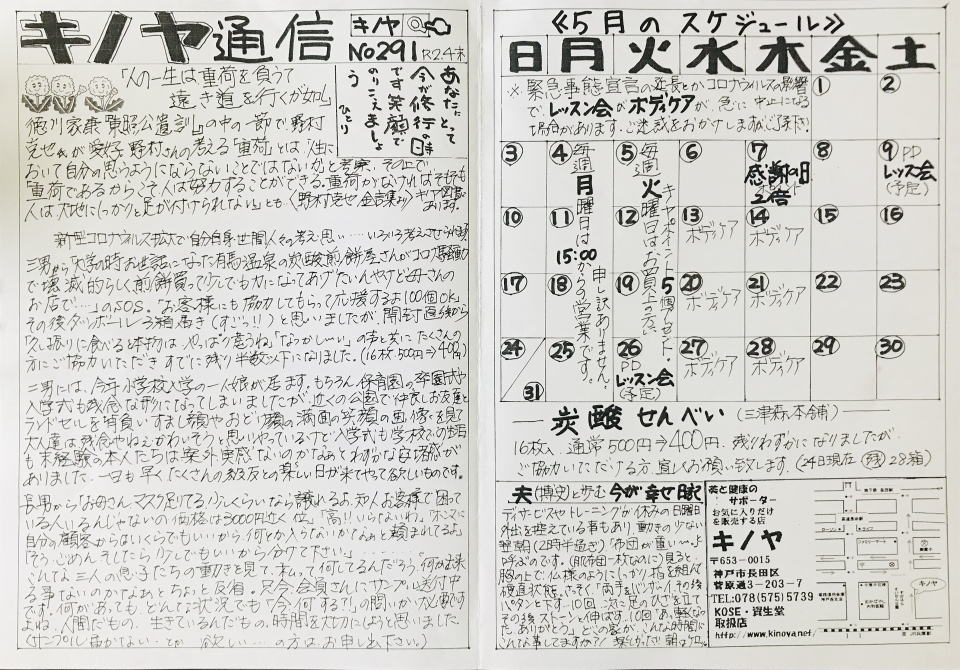 キノヤ通信
キノヤ
No.291 R2.4末
「人の一生は重荷を負うて
遠き道を行くが如し」
あなたにとって
今が修行の時
です 笑顔で
のりこえましょ
う
ひとり
徳川家康「東照公遺訓」の中の一節で、野村
克也氏が愛好。野村さんの考える「重荷」とは「人生に
おいて自分の思うようにならないことではないか」と考察、その上で
「重荷であるからこそ人は努力することができる。重荷がなければそもそも
人は大地にしっかりと足が付けられない」とも
新型コロナウイルス拡大で自分自身、世間、人、その考え、思い……いろいろ考えさせられます
三男から「大学の時お世話になった有馬温泉の炭酸煎餅屋さんがコロナ騒動
で壊滅的らしく煎餅買って少しでも力になってあげたいんやけど母さんの
お店で…」のSOS。「お客様にも協力してもらって応援するよ100個OK」
その後ダンボール3箱届き(すごっ!!)と思いましたが、開封直後から
「久し振りに食べると本物はやっぱり違うね」「なつかし〜い」の声と共にたくさんの
方にご協力いただきすでに残り半数以下になりました。(16枚500円⇒400円)
二男には、今年小学校入学の一人娘が居ます。もちろん保育園の卒園式や
入学式も残念な形になってしまいましたが、近くの公園で仲良しお友達と
ランドセルを背負い、すまし顔やおどけ顔の満面の笑顔の画像を見て
大人達は残念やねぇかわいそうと思いやっているけど入学式も学校での生活
も未経験の本人たちは案外実感ないのかなぁとわずかな安堵感が
ありました。一日も早くたくさんの級友との楽しい日が来てやって欲しいものです。
長男から「お母さん、マスク足りてる?少しくらいなら譲れるよ。知人、お客様で困って
いる人いるんじゃないの?価格は3000円近く位」「高!!いらないわ」「ホンマに
自分の顧客からはいくらでもいいから何とか入らないか?なぁんて頼まれてるよ」
「そう、ごめん。そしたら少しでもいいから分けて下さい。」……
こんな三人の息子たちの動きを見て、私って何してるんだろう、何か出来
る事ないのかなぁとちょっと反省。只今会員さんにサンプル送付中
です。何があっても、どんな状況でも「今何する?」の問いかけ必要です
よね。人間だもの。生きているんだもの。時間を大切にしようと思いました。
(サンプル届かない…とか 欲しい…の方はお申し出下さい。)
≪5月のスケジュール≫
日 月 火 水 木 金 土
※緊急事態宣言の延長とかコロナウイルスの影響
で、レッスン会がボディケアが、急に中止になる
場合があります。ご迷惑をおかけしますがご了承下さい
① ②
③ ④ ⑤ ⑥ ⑦ ⑧ ⑨
感謝の日
2倍
PD
レッスン会
(予定)
毎週月曜日は
15:00
からの営業です。
申し訳ありません。
毎週火曜日はお買上の方に
キャポイント5個プレゼント。
⑩ ⑪ ⑫ ⑬ ⑭ ⑮ ⑯
ボディケア ボディケア
⑰ ⑱ ⑲ ⑳ ㉑ ㉒ ㉓
ボディケア ボディケア
㉔ ㉛ ㉕ ㉖ ㉗ ㉘ ㉙ ㉚
PD
レッスン会
(予定)
ボディケア ボディケア
炭酸せんべい (三津森本舗)
16枚入 通常500円⇒400円。残りわずかになりましたが、
ご協力いただける方、宜しくお願い致します。(24日現在 残28箱)
夫(博史)と歩む 今が幸せ日記
デイサービスやトレーニングが休みの日曜日
外出を控えている事もあり、動きの少ない
翌朝(2時半過ぎ)「布団が重い…」と
呼ぶのです。(肌布団一枚なのに)見ると
胸の上で仏様のようにしっかり指を組んで
硬直状態。さっそく「両手をバンザイ、その後
パタンと下す…10回、次に足のひざを立て
その後ストーンと伸ばす…10回「あ〜軽くなっ
た、ありがとう」どこの家が、こんな時間に
こんな事してますか?!
美と健康の
サポーター
お気に入りだけ
を販売する店
キノヤ
〒653-0015
神戸市長田区
菅原通3-203-7
TEL:078(575)5739
KOSE・資生堂
取扱店
http://www.kinoya.net/
キノヤ